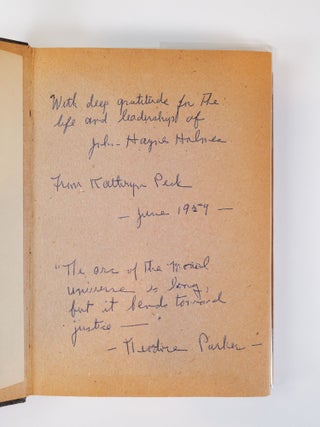 With deep gratitude for the
life and leadership of
John Hayne Holmes
From Kathryn Peck
— June 1959 —
"The arc of the moral
universe is long,
but it bends toward
justice — "
- Theodore Parker -